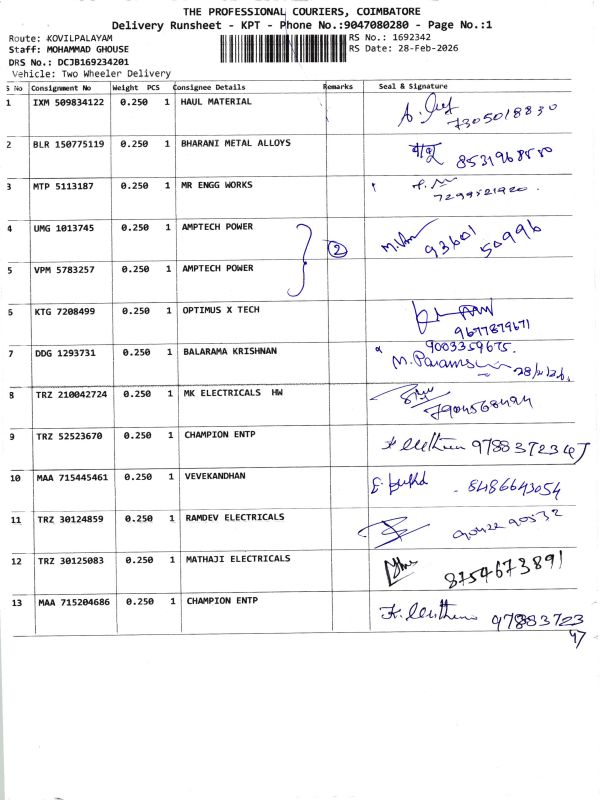 THE PROFESSIONAL COURIERS, COIMBATORE
Delivery Runsheet - KPT - Phone No.:9047080280 - Page No.:1
Route: KOVILPALAYAM
RS No.: 1692342
Staff: MOHAMMAD GHOUSE
RS Date: 28-Feb-2026
DRS No.: DCJB169234201
Vehicle: Two Wheeler Delivery
S No Consignment No Weight PCS Consignee Details Remarks Seal & Signature
1 IXM 509834122 0.250 1 HAUL MATERIAL
7305018830
2 BLR 150775119 0.250 1 BHARANI METAL ALLOYS
8531968550
3 MTP 5113187 0.250 1 MR ENGG WORKS
7299521920.
4 UMG 1013745 0.250 1 AMPTECH POWER
2 93601 50996
5 VPM 5783257 0.250 1 AMPTECH POWER
6 KTG 7208499 0.250 1 OPTIMUS X TECH
9677879671
7 DDG 1293731 0.250 1 BALARAMA KRISHNAN 9003359675.
8 TRZ 210042724 0.250 1 MK ELECTRICALS HW
7904568494
9 TRZ 52523670 0.250 1 CHAMPION ENTP 9788372347
10 MAA 715445461 0.250 1 VEVEKANDHAN 8486643054
11 TRZ 30124859 0.250 1 RAMDEV ELECTRICALS
12 TRZ 30125083 0.250 1 MATHAJI ELECTRICALS 8754673891
13 MAA 715204686 0.250 1 CHAMPION ENTP 97883723
47